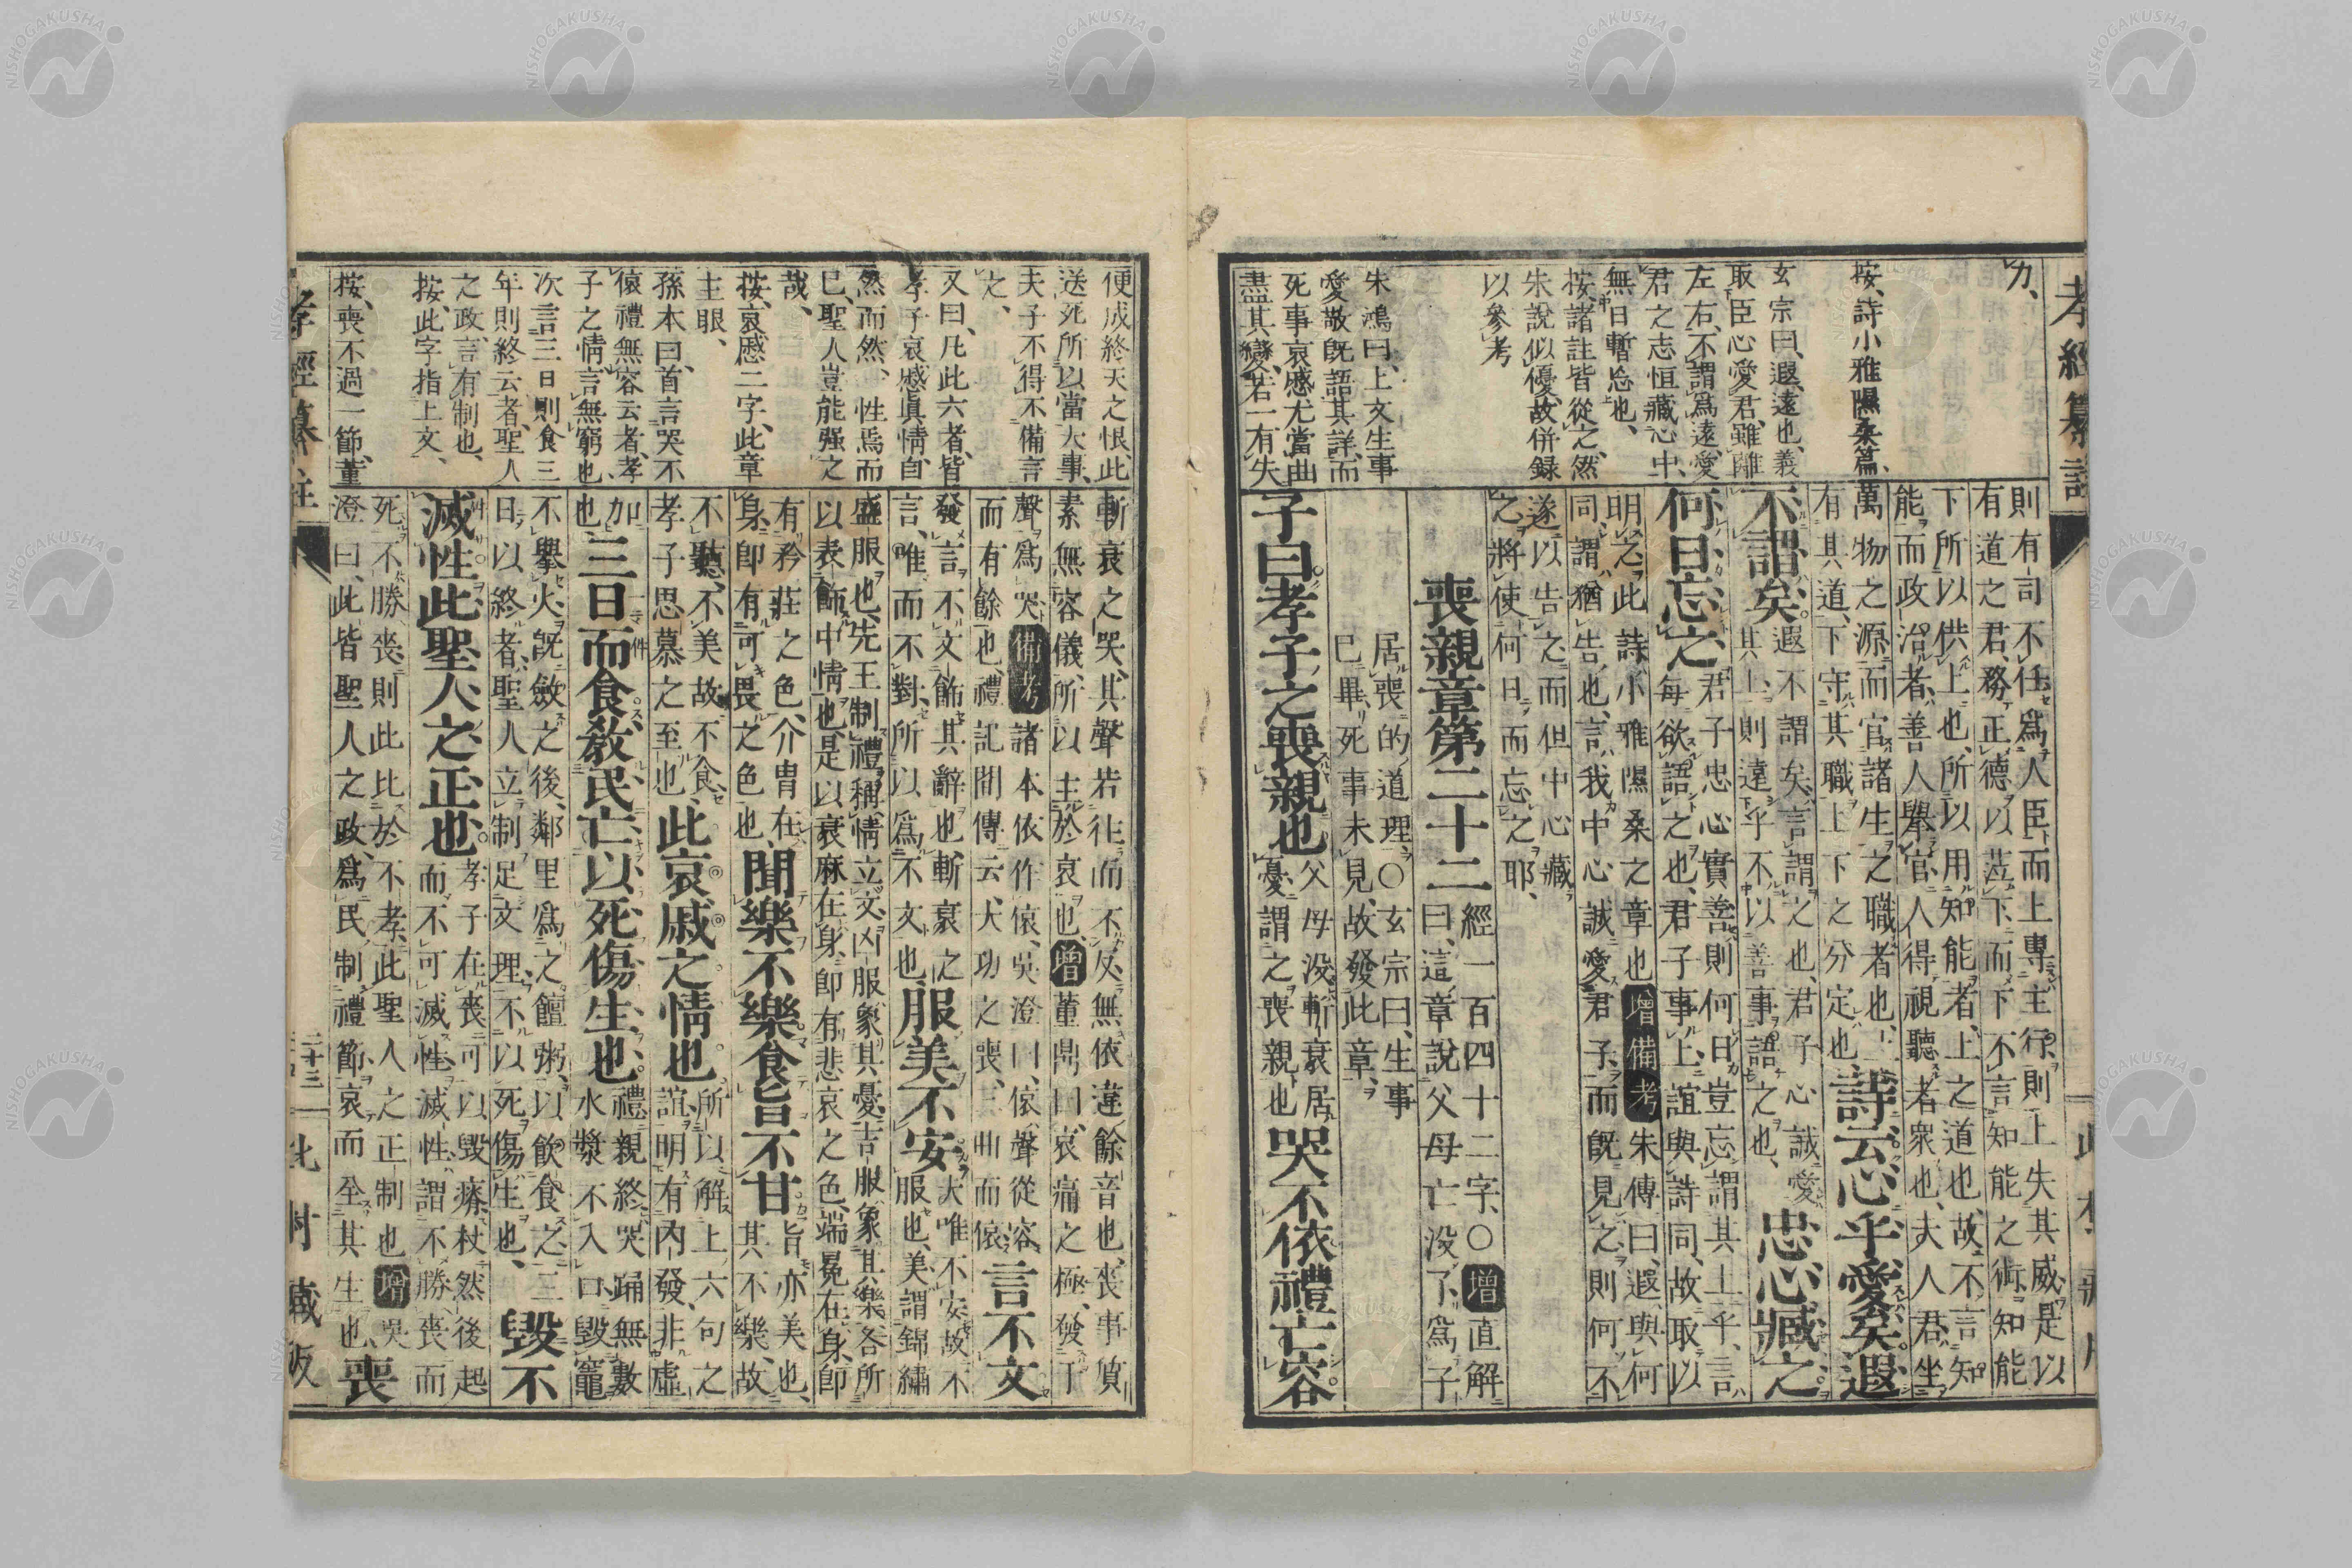 孝經纂註
力、
按、詩小雅隰桑篇、
玄宗曰、遐遠也、義
取臣心愛君、雖離
左右、不謂爲遠、愛
君之志恒藏心中、
無日暫忘也、
按、諸註皆從之、然
朱說似優、故併録
以參考
朱鴻曰、上文生事
愛敬既語其詳、而
死事哀慼尤當曲
盡其變、若一有失
則有司不任爲人臣而上專主行則上失其威是以
有道之君、務正德以莅下、而下不言知能之術知能
下所以供上也、所以用知能者、上之道也、故不言知
能而政治者、善人擧官、人得視聽者衆也、夫人君坐
萬物之源而官諸生之職者也、
有其道、下守其職上下之分定也
詩云心乎愛矣遐
不謂矣
遐不謂矣、言謂之也、君子心誠愛
其上、則遠乎不以善事語之也、
忠心藏之
何日忘之
君子忠心實善則何日豈忘謂其上乎、言
每欲語之也、君子事上誼與詩同、故取以
明之此詩小雅隰桑之章也增備考朱傳曰、遐與何
同、謂猶告也、言我中心誠愛君子、而既見之則何不
遂以告之而但中心藏
之、將使何日而忘之耶、
喪親章第二十二
經一百四十二字、〇增直解
曰、這章說父母亡没了爲子
居喪的道理、〇玄宗曰、生事
已畢、死事未見、故發此章、
子曰孝子之喪親也
父母没斬衰居
憂謂之喪親也
哭不依禮亡容
便成終天之恨、此
送死所以當大事、
夫子不得不備言
之、
又曰、凡此六者、皆
孝子哀慼眞情自
然而然、性焉而
已、聖人豈能强之
哉、
按、哀慼二字、此章
主眼、
孫本曰、首言哭不
偯禮無容云者、孝
子之情、言無窮也
次言三日則食三
年則終云者、聖人
之政、言有制也、
按、此字指上文、
按、喪不過一節、董
斬衰之哭、其聲若往而不反、無依違餘音也、喪事質
素無容儀、所以主於哀也、增董鼎曰、哀痛之極、發于
聲爲哭、備考諸本依作偯、吳澄曰、偯聲從容
而有餘也、禮記間傳云、大功之喪、三曲而偯
言不文
發言不文飾其辭也、斬衰之
言、唯而不對、所以爲不文也
服美不安
大唯不安故不
服也、美謂錦繡
盛服也、先王制禮稱情立文、凶服象其憂、吉服象其樂、各所
以表飾中情也、是以衰麻在身、卽有悲哀之色、端冕在身、卽
有矜莊之色、介冑在
身、卽有可畏之色也、
聞樂不樂食旨不甘
旨亦美也、
其不樂、故
不聽、不美故不食、
孝子思慕之至也
此哀戚之情也
所以解上六句之
誼、明有內發、非虛
加也
三日而食敎民亡以死傷生也
禮親終哭踊無數
水漿不入口毀竈
不擧火、既斂之後、鄰里爲之饘粥、以飮食之三
日以終者、聖人立制足文理、不以死傷生也、
毀不
滅性此聖人之正也
孝子在喪可以毀瘠杖然後起
而不可滅性、滅性謂不勝喪而
死、不勝喪、則此比於不孝、此聖人之正制也增吳
澄曰、此皆聖人之政、爲民制禮節哀而全其生也、
喪
孝經纂註
二十三
北村藏版